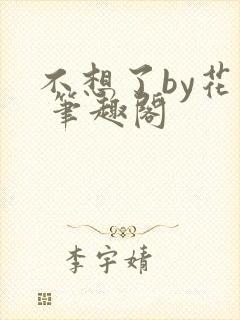 不想了by花
筆趣閣
李宇婧